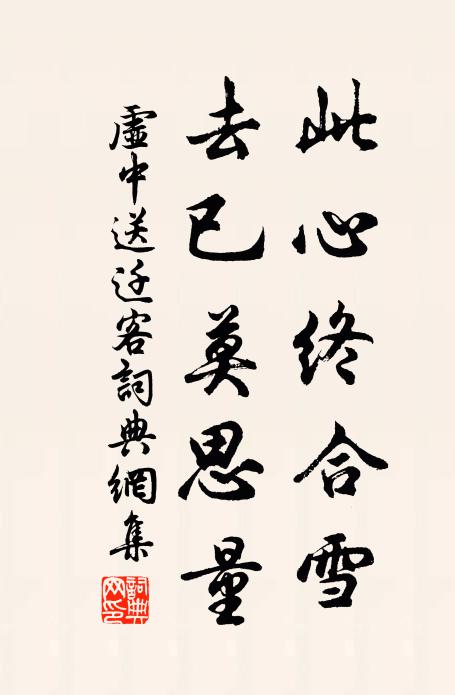 此心终合雪
去已莫思量
虛中送迁客詞典網集
詞典網印